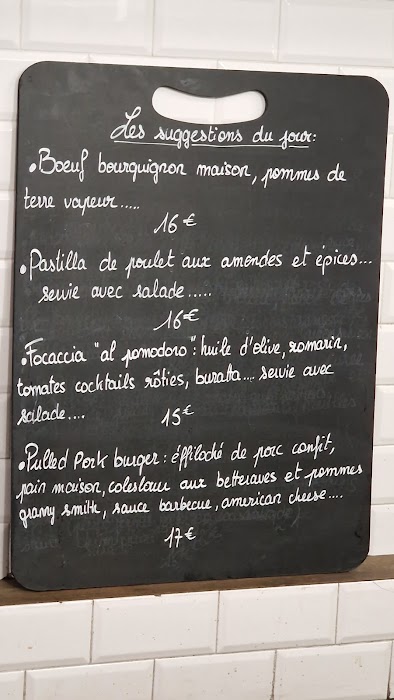 Les suggestions du jour:
• Boeuf bourguignon maison, pommes de
terre vapeur.....
16€
• Pastilla de poulet aux amandes et épices...
servie avec salade.....
16€
• Focaccia "al pomodoro": huile d'olive, romarin,
tomates cocktails rôties, buratta.... servie avec
salade....
15€
• Pulled Pork burger: éffiloché de porc confit,
pain maison, coleslaw aux betteraves et pommes
granny smith, sauce barbecue, american cheese....
17€